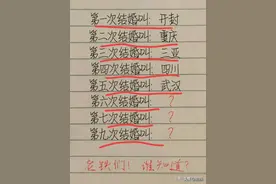 第一次结婚叫: 开封
第二次结婚叫: 重庆
第三次结婚叫: 三亚
第四次结婚叫: 四川
第五次结婚叫: 武汉
第六次结婚叫: ?
第七次结婚叫: ?
第九次结婚叫: ?